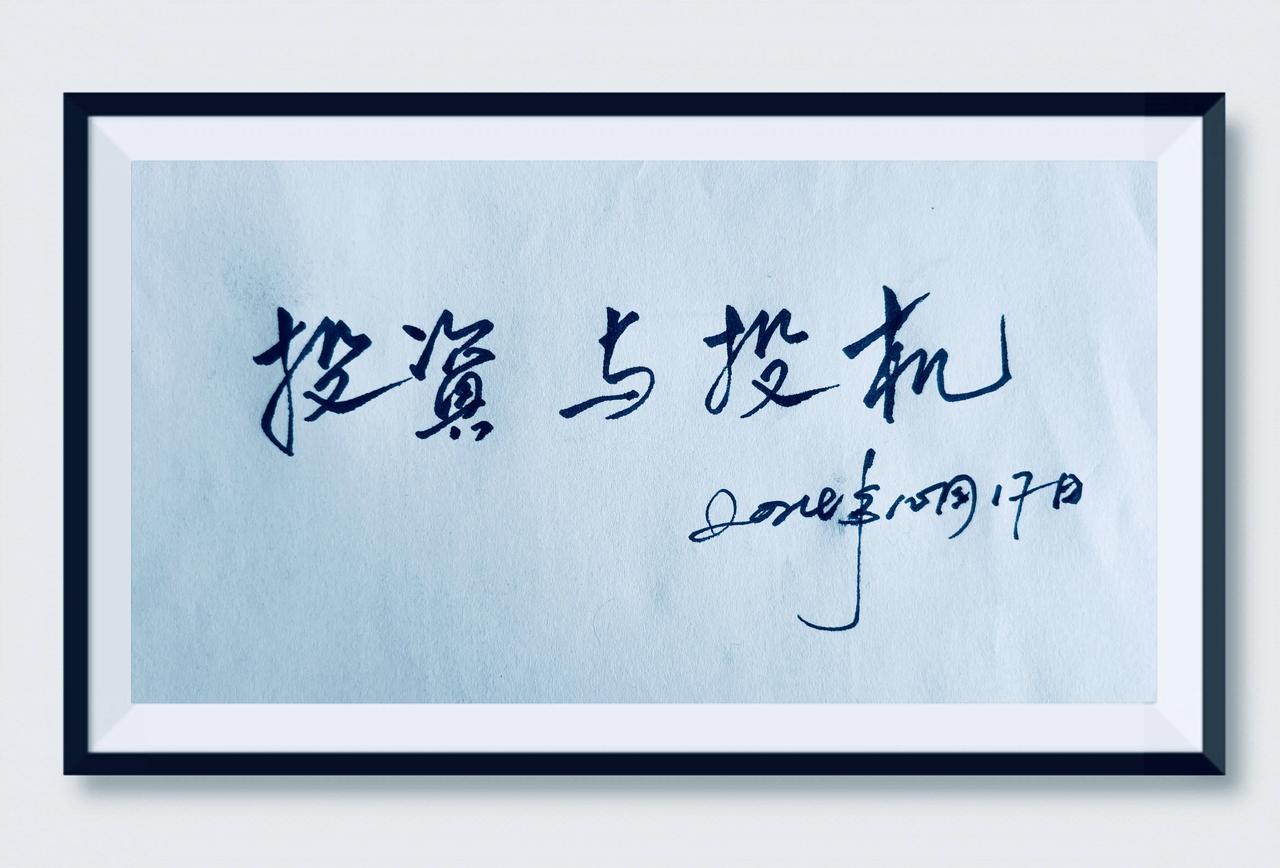 投資与投机
2024年10月17日